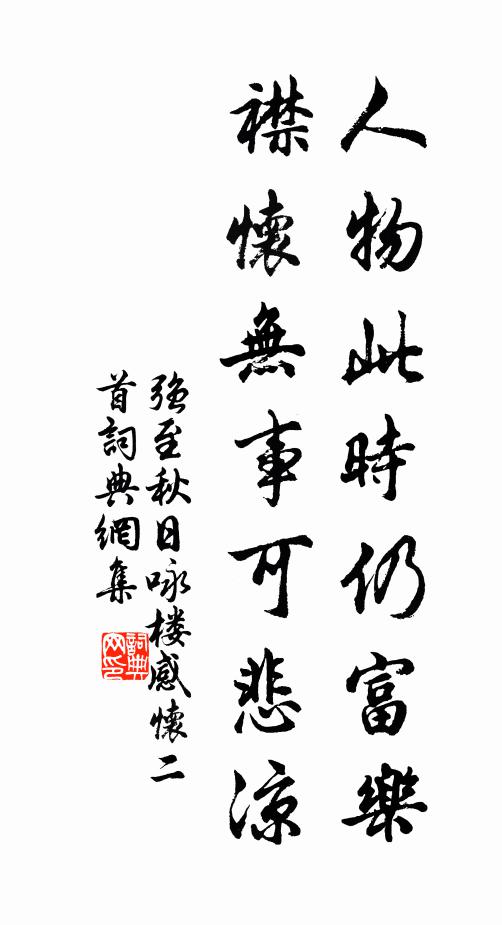 人物此時仍富樂
襟懷無事可悲涼
强至秋日咏楼感懷二
首詞典網集
詞典网印